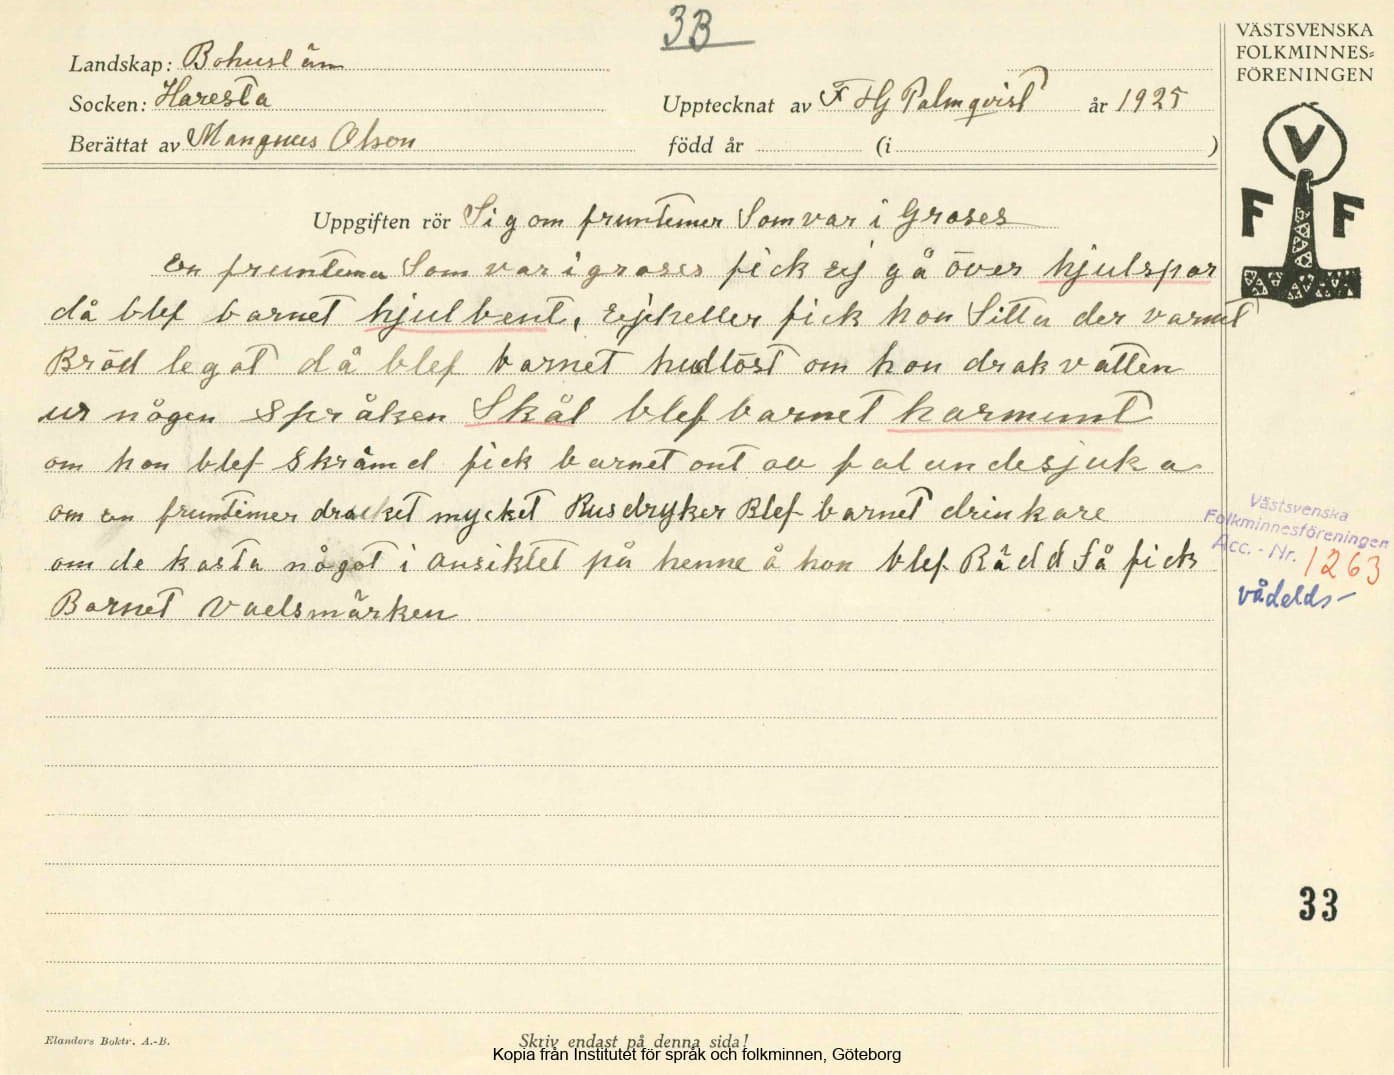 3B
VÄSTSVENSKA
FOLKMINNES=
FÖRENINGEN
Landskap: Bohuslän
Socken: Haresta
Upptecknat av F HG Palmqvist år 1925
Berättat av Mangnus Olson
född år (i )
V
F F
Uppgiften rör Sig om fruntemer Som var i Groses
En fruntemer Som var i groses fick Ejj gå över hjulspor
då blef barnet hjulbent, Ejjheller fick hon Sitta der varmt
Bröd legat då blef barnet hudlöst om hon drak vatten
ur någen Språken Skål blef barnet harmunt
om hon blef Skrämd fick barnet ont av falandesjuka
om en fruntimer dracket mycket Rusdryker Blef barnet drinkare
om de kasta något i ansiktet på henne å hon blef Rädd Så fick
Barnet Vaelsmärken
Västsvenska
Folkminnesföreningen
Acc. - Nr. 1263
vådelds-
33
Elanders Boktr. A.-B.
Skriv endast på denna sida!
Kopia från Institutet för språk och folkminnen, Göteborg